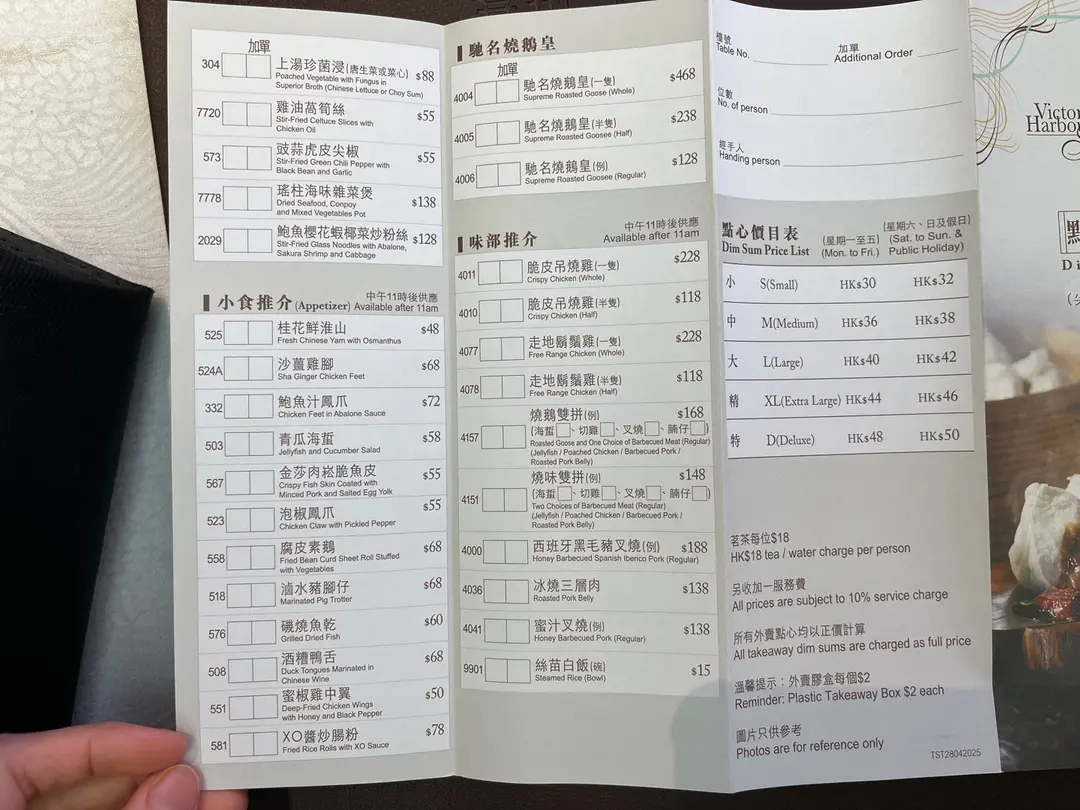 加單
304 上湯珍菌浸(唐生菜或菜心) $88
Poached Vegetable with Fungus in
Superior Broth (Chinese Lettuce or Choy Sum)
7720 雞油萵筍絲 $55
Stir-Fried Celtuce Slices with
Chicken Oil
573 豉蒜虎皮尖椒 $55
Stir-Fried Green Chili Pepper with
Black Bean and Garlic
7778 瑤柱海味雜菜煲 $138
Dried Seafood, Conpoy
and Mixed Vegetables Pot
2029 鮑魚櫻花蝦椰菜炒粉絲 $128
Stir-Fried Glass Noodles with Abalone,
Sakura Shrimp and Cabbage
小食推介(Appetizer) 中午11時後供應
Available after 11am
525 桂花鮮淮山 $48
Fresh Chinese Yam with Osmanthus
524A 沙薑雞腳 $68
Sha Ginger Chicken Feet
332 鮑魚汁鳳爪 $72
Chicken Feet in Abalone Sauce
503 青瓜海蜇 $58
Jellyfish and Cucumber Salad
567 金莎肉崧脆魚皮 $55
Crispy Fish Skin Coated with
Minced Pork and Salted Egg Yolk
523 泡椒鳳爪 $55
Chicken Claw with Pickled Pepper
558 腐皮素鵝 $68
Fried Bean Curd Sheet Roll Stuffed
with Vegetables
518 滷水豬腳仔 $68
Marinated Pig Trotter
576 磯燒魚乾 $60
Grilled Dried Fish
508 酒糟鴨舌 $68
Duck Tongues Marinated in
Chinese Wine
551 蜜椒雞中翼 $50
Deep-Fried Chicken Wings
with Honey and Black Pepper
581 XO醬炒腸粉 $78
Fried Rice Rolls with XO Sauce
馳名燒鵝皇
加單
4004 馳名燒鵝皇(一隻) $468
Supreme Roasted Goose (Whole)
4005 馳名燒鵝皇(半隻) $238
Supreme Roasted Goosee (Half)
4006 馳名燒鵝皇(例) $128
Supreme Roasted Goosee (Regular)
味部推介 中午11時後供應
Available after 11am
4011 脆皮吊燒雞(一隻) $228
Crispy Chicken (Whole)
4010 脆皮吊燒雞(半隻) $118
Crispy Chicken (Half)
4077 走地鬍鬚雞(一隻) $228
Free Range Chicken (Whole)
4078 走地鬍鬚雞(半隻) $118
Free Range Chicken (Half)
4157 燒鵝雙拼(例) $168
(海蜇、切雞、叉燒、腩仔)
Roasted Goose and One Choice of Barbecued Meat (Regular)
(Jellyfish / Poached Chicken / Barbecued Pork /
Roasted Pork Belly)
4151 燒味雙拼(例) $148
(海蜇、切雞、叉燒、腩仔)
Two Choices of Barbecued Meat (Regular)
(Jellyfish / Poached Chicken / Barbecued Pork /
Roasted Pork Belly)
4000 西班牙黑毛豬叉燒(例) $188
Honey Barbecued Spanish Iberico Pork (Regular)
4036 冰燒三層肉 $138
Roasted Pork Belly
4041 蜜汁叉燒(例) $138
Honey Barbecued Pork (Regular)
9901 絲苗白飯(碗) $15
Steamed Rice (Bowl)
檯號 加單
Table No. Additional Order
位數
No. of person
經手人
Handing person
點心價目表 (星期一至五) (星期六、日及假日)
Dim Sum Price List (Mon. to Fri.) (Sat. to Sun. &
Public Holiday)
小 S(Small) HK$30 HK$32
中 M(Medium) HK$36 HK$38
大 L(Large) HK$40 HK$42
精 XL(Extra Large) HK$44 HK$46
特 D(Deluxe) HK$48 HK$50
茗茶每位$18
HK$18 tea / water charge per person
另收加一服務費
All prices are subject to 10% service charge
所有外賣點心均以正價計算
All takeaway dim sums are charged as full price
溫馨提示：外賣膠盒每個$2
Reminder: Plastic Takeaway Box $2 each
圖片只供參考
Photos are for reference only
TST28042025